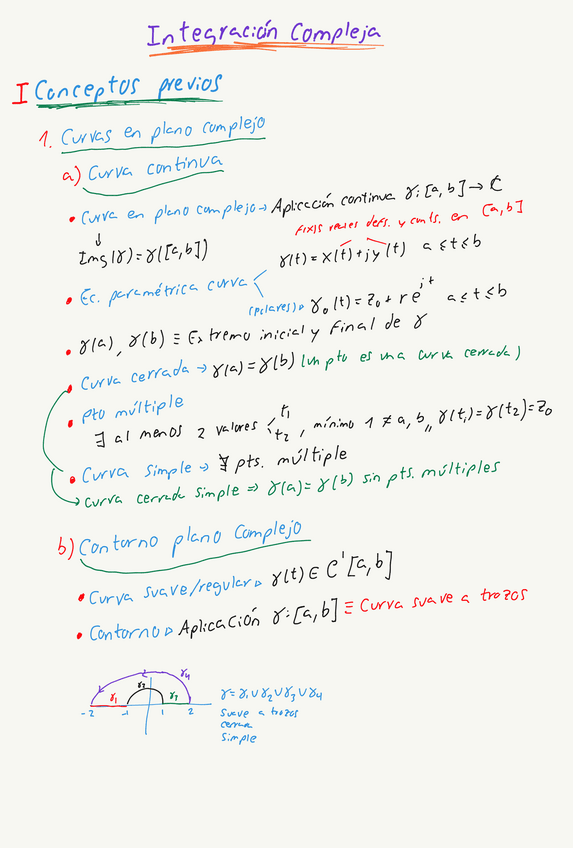 Integración Compleja
I Conceptos previos
1. Curvas en plano complejo
a) Curva continua
• Curva en plano complejo → Aplicación continua γ:[a,b] → ℂ
↓
Img(γ) = γ([a,b])
fxs reales defs. y conts. en [a,b]
• Ec. paramétrica curva
γ(t) = x(t) + jy(t) a ≤ t ≤ b
(polares) ▹ γ₀(t) = z₀ + r e^{jt} a ≤ t ≤ b
• γ(a), γ(b) ≡ Extremo inicial y final de γ
• Curva cerrada → γ(a) = γ(b) (un pto es una curva cerrada)
• Pto múltiple
∃ al menos 2 valores t₁ t₂, mínimo 1 ≠ a, b,, γ(t₁) = γ(t₂) = z₀
• Curva simple → ∄ pts. múltiple
→ Curva cerrada simple ⇒ γ(a) = γ(b) sin pts. múltiples
b) Contorno plano Complejo
• Curva suave/regular ▹ γ(t) ∈ C'[a,b]
• Contorno ▹ Aplicación γ:[a,b] ≡ Curva suave a trozos
γ₄
γ₂
γ₁ γ₃
-2 -1 1 2
γ = γ₁ ∪ γ₂ ∪ γ₃ ∪ γ₄
suave a trozos
simple